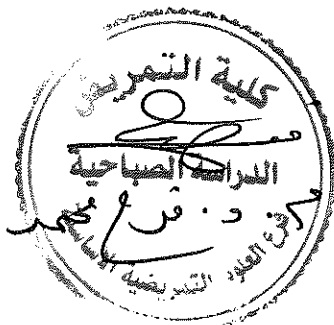 كلية التمريض
الدراسة الصباحية
فرع العلوم التمريضية الأساسية